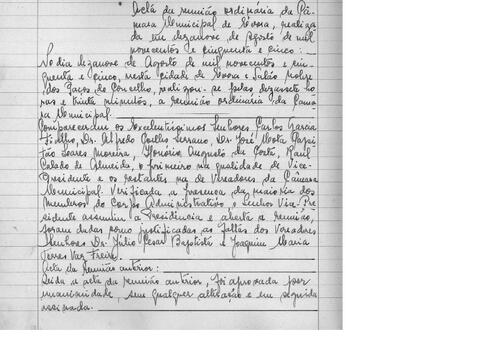 Acta da reunião ordinária da Câ-
mara Municipal de Évora, realiza
da em dezanove de Agosto de mil
novecentos e cinquenta e cinco:
No dia dezanove de Agosto de mil novecentos e cin-
quenta e cinco, nesta cidade de Évora e Salão Nobre
dos Paços do Concelho, realizou-se pelas dezassete ho
ras e trinta minutos, a reunião ordinária da Câma
ra Municipal.
Compareceram os Excelentíssimos Senhores Carlos Garcia
Fialho, Dr. Alfredo Coelho Serrano, Dr. José Mota Capi
tão Soares Moreira, Honório Augusto da Costa, Raul
Calado de Almeida, o primeiro na qualidade de Vice-
Presidente e os restantes na de Vereadores da Câmara
Municipal. Verificada a presença da maioria dos
membros do Corpo Administrativo, o senhor Vice-Pre
sidente assumiu a Presidência e aberta a reunião,
foram dadas como justificadas as faltas dos Vereadores
Senhores Dr. Júlio César Baptista e Joaquim Maria
Vaz Freire.
Acta da reunião anterior:
Lida a acta da reunião anterior, foi aprovada por
unanimidade, sem qualquer alteração e em seguida
assinada.